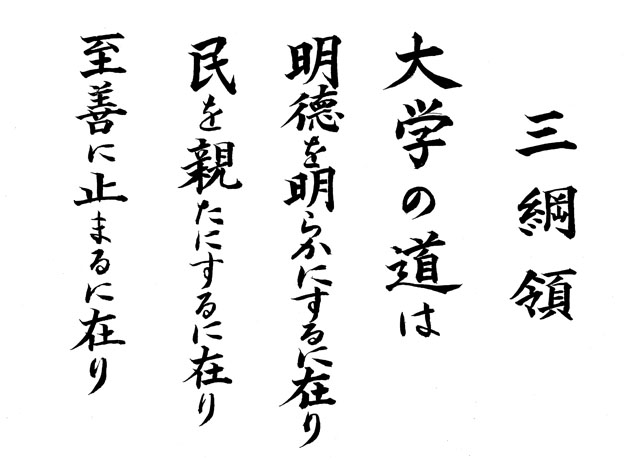 三綱領
大学の道は
明徳を明らかにするに在り
民を親たにするに在り
至善に止まるに在り